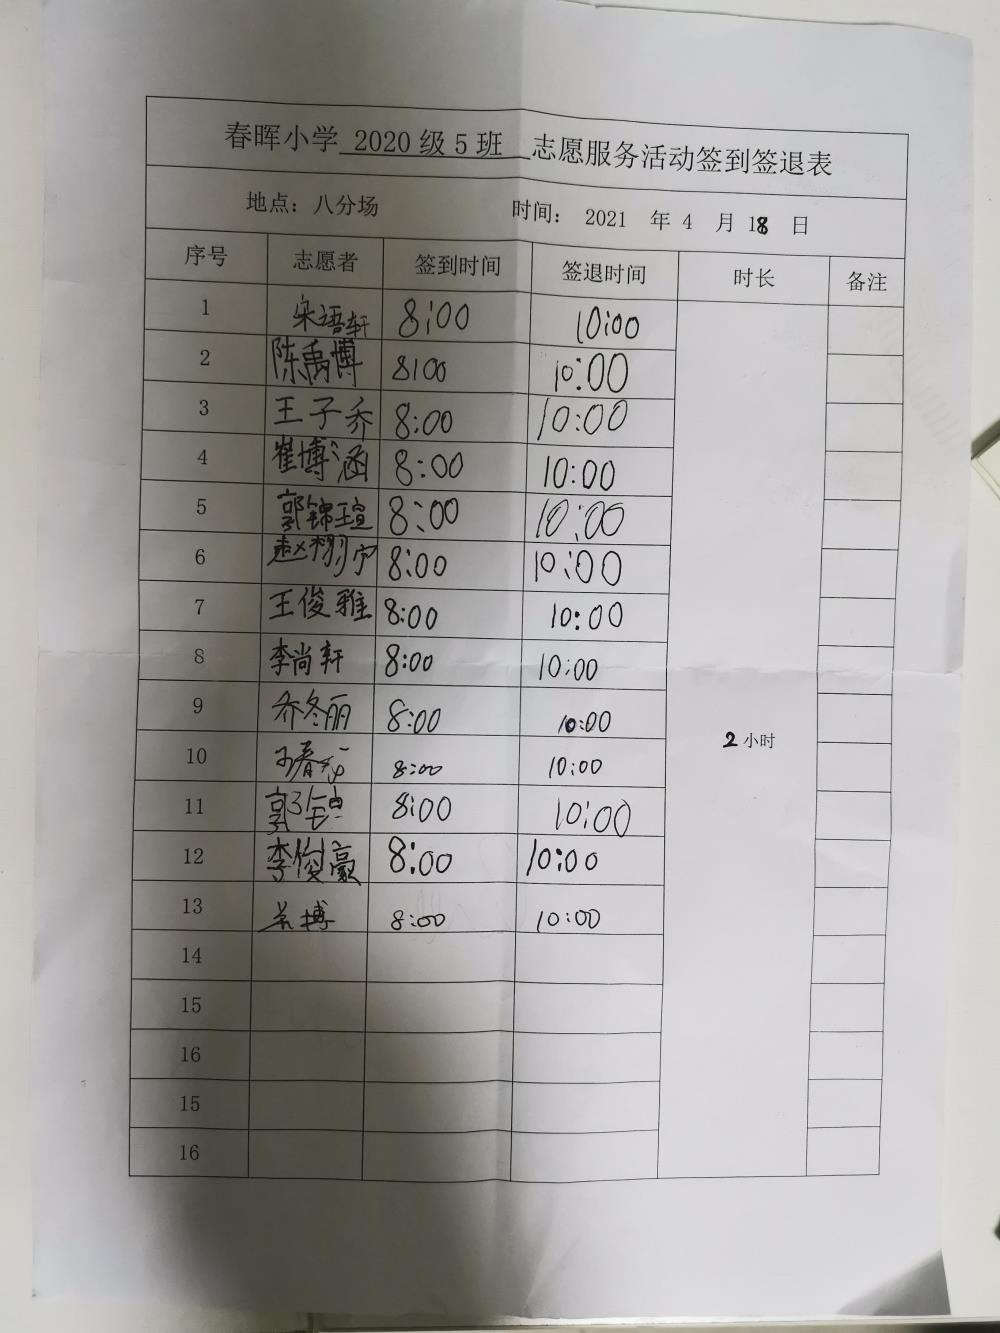 春晖小学 2020 级 5 班 志愿服务活动签到签退表
地点：八分场 时间： 2021 年 4 月 18 日
序号 志愿者 签到时间 签退时间 时长 备注
1 宋语轩 8:00 10:00
2 陈禹博 8:00 10:00
3 王子乔 8:00 10:00
4 崔博涵 8:00 10:00
5 郭锦瑄 8:00 10:00
6 赵栩宁 8:00 10:00
7 王俊雅 8:00 10:00
8 李尚轩 8:00 10:00
9 乔冬丽 8:00 10:00
2 小时
10 8:00 10:00
11 8:00 10:00
12 李俊豪 8:00 10:00
13 8:00 10:00
14
15
16
15
16